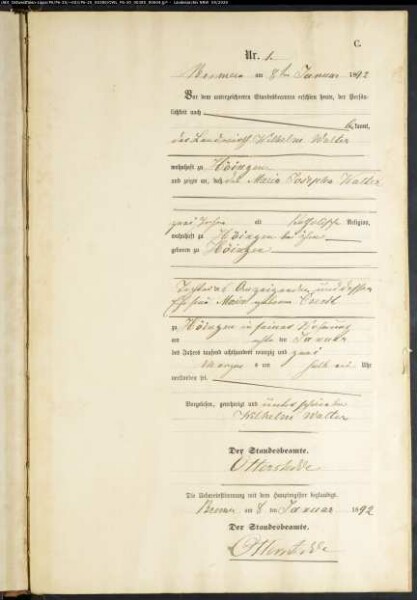 C.
Nr. 1
Bremen am 8ten Januar 1892
Vor dem unterzeichneten Standesbeamten erschien heute, der Persön-
lichkeit nach
bekannt,
der Landwirth Wilhelm Walter
wohnhaft zu Höingen
und zeigte an, daß die Maria Josepha Walter
zwei Jahre alt katholischer Religion,
wohnhaft zu Höingen bei ihm
geboren zu Höingen
Tochter des Anzeigenden und dessen
Ehefrau Maria geborene
zu Höingen in seiner Wohnung
am achten Januar
des Jahres tausend achthundert neunzig und zwei
Morgens um halb Uhr
verstorben sei.
Vorgelesen, genehmigt und unterschrieben
Wilhelm Walter
Der Standesbeamte.
Die Uebereinstimmung mit dem Hauptregister beglaubigt.
Bremen am 8 ten Januar 1892
Der Standesbeamte.